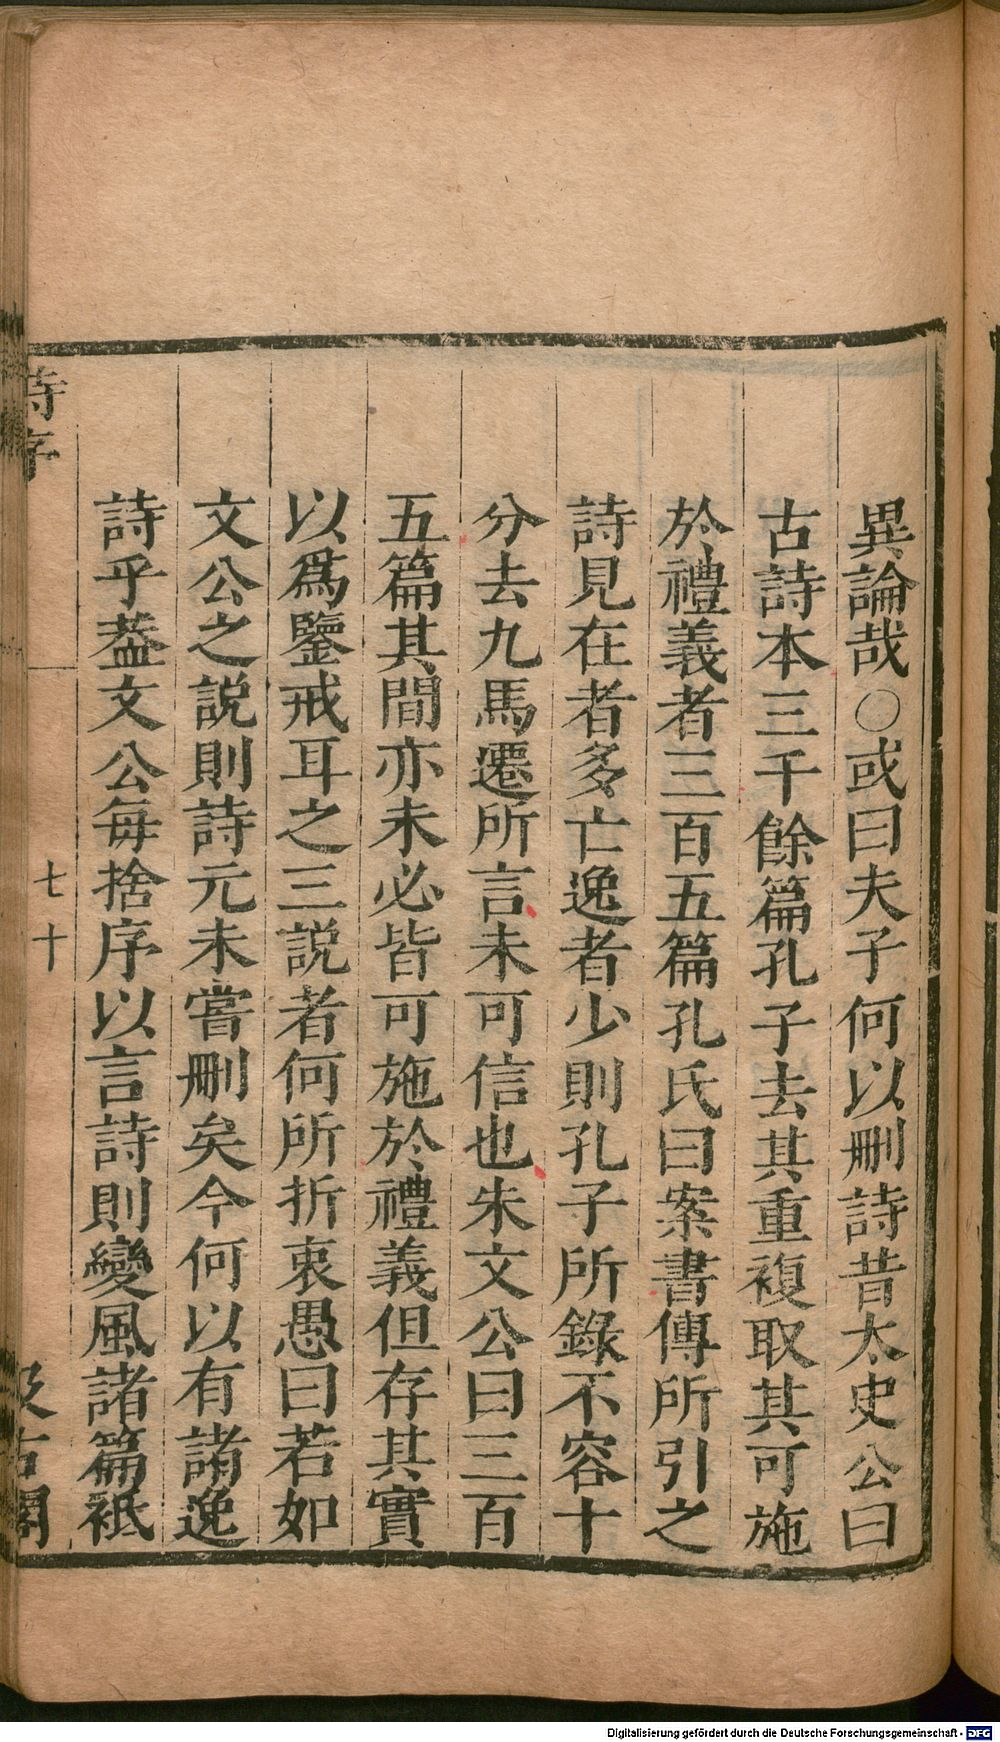 異論哉○或曰夫子何以刪詩昔太史公曰
古詩本三千餘篇孔子去其重複取其可施
於禮義者三百五篇孔氏曰案書傳所引之
詩見在者多亡逸者少則孔子所錄不容十
分去九馬遷所言未可信也朱文公曰三百
五篇其間亦未必皆可施於禮義但存其實
以爲鑒戒耳之三說者何所折衷愚曰若如
文公之說則詩元未嘗刪矣今何以有諸逸
詩乎葢文公每捨序以言詩則變風諸篇祗
詩序
七十
汲古閣
Digitalisierung gefördert durch die Deutsche Forschungsgemeinschaft - DFG